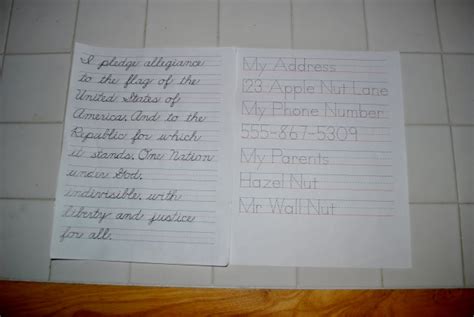 I pledge allegiance
to the flag of the
United States of
America. And to the
Republic for which
it stands. One Nation
under God,
indivisible, with
liberty and justice
for all.
My Address
123 Apple Nut Lane
My Phone Number
555-867-5309
My Parents
Hazel Nut
Mr Wall Nut